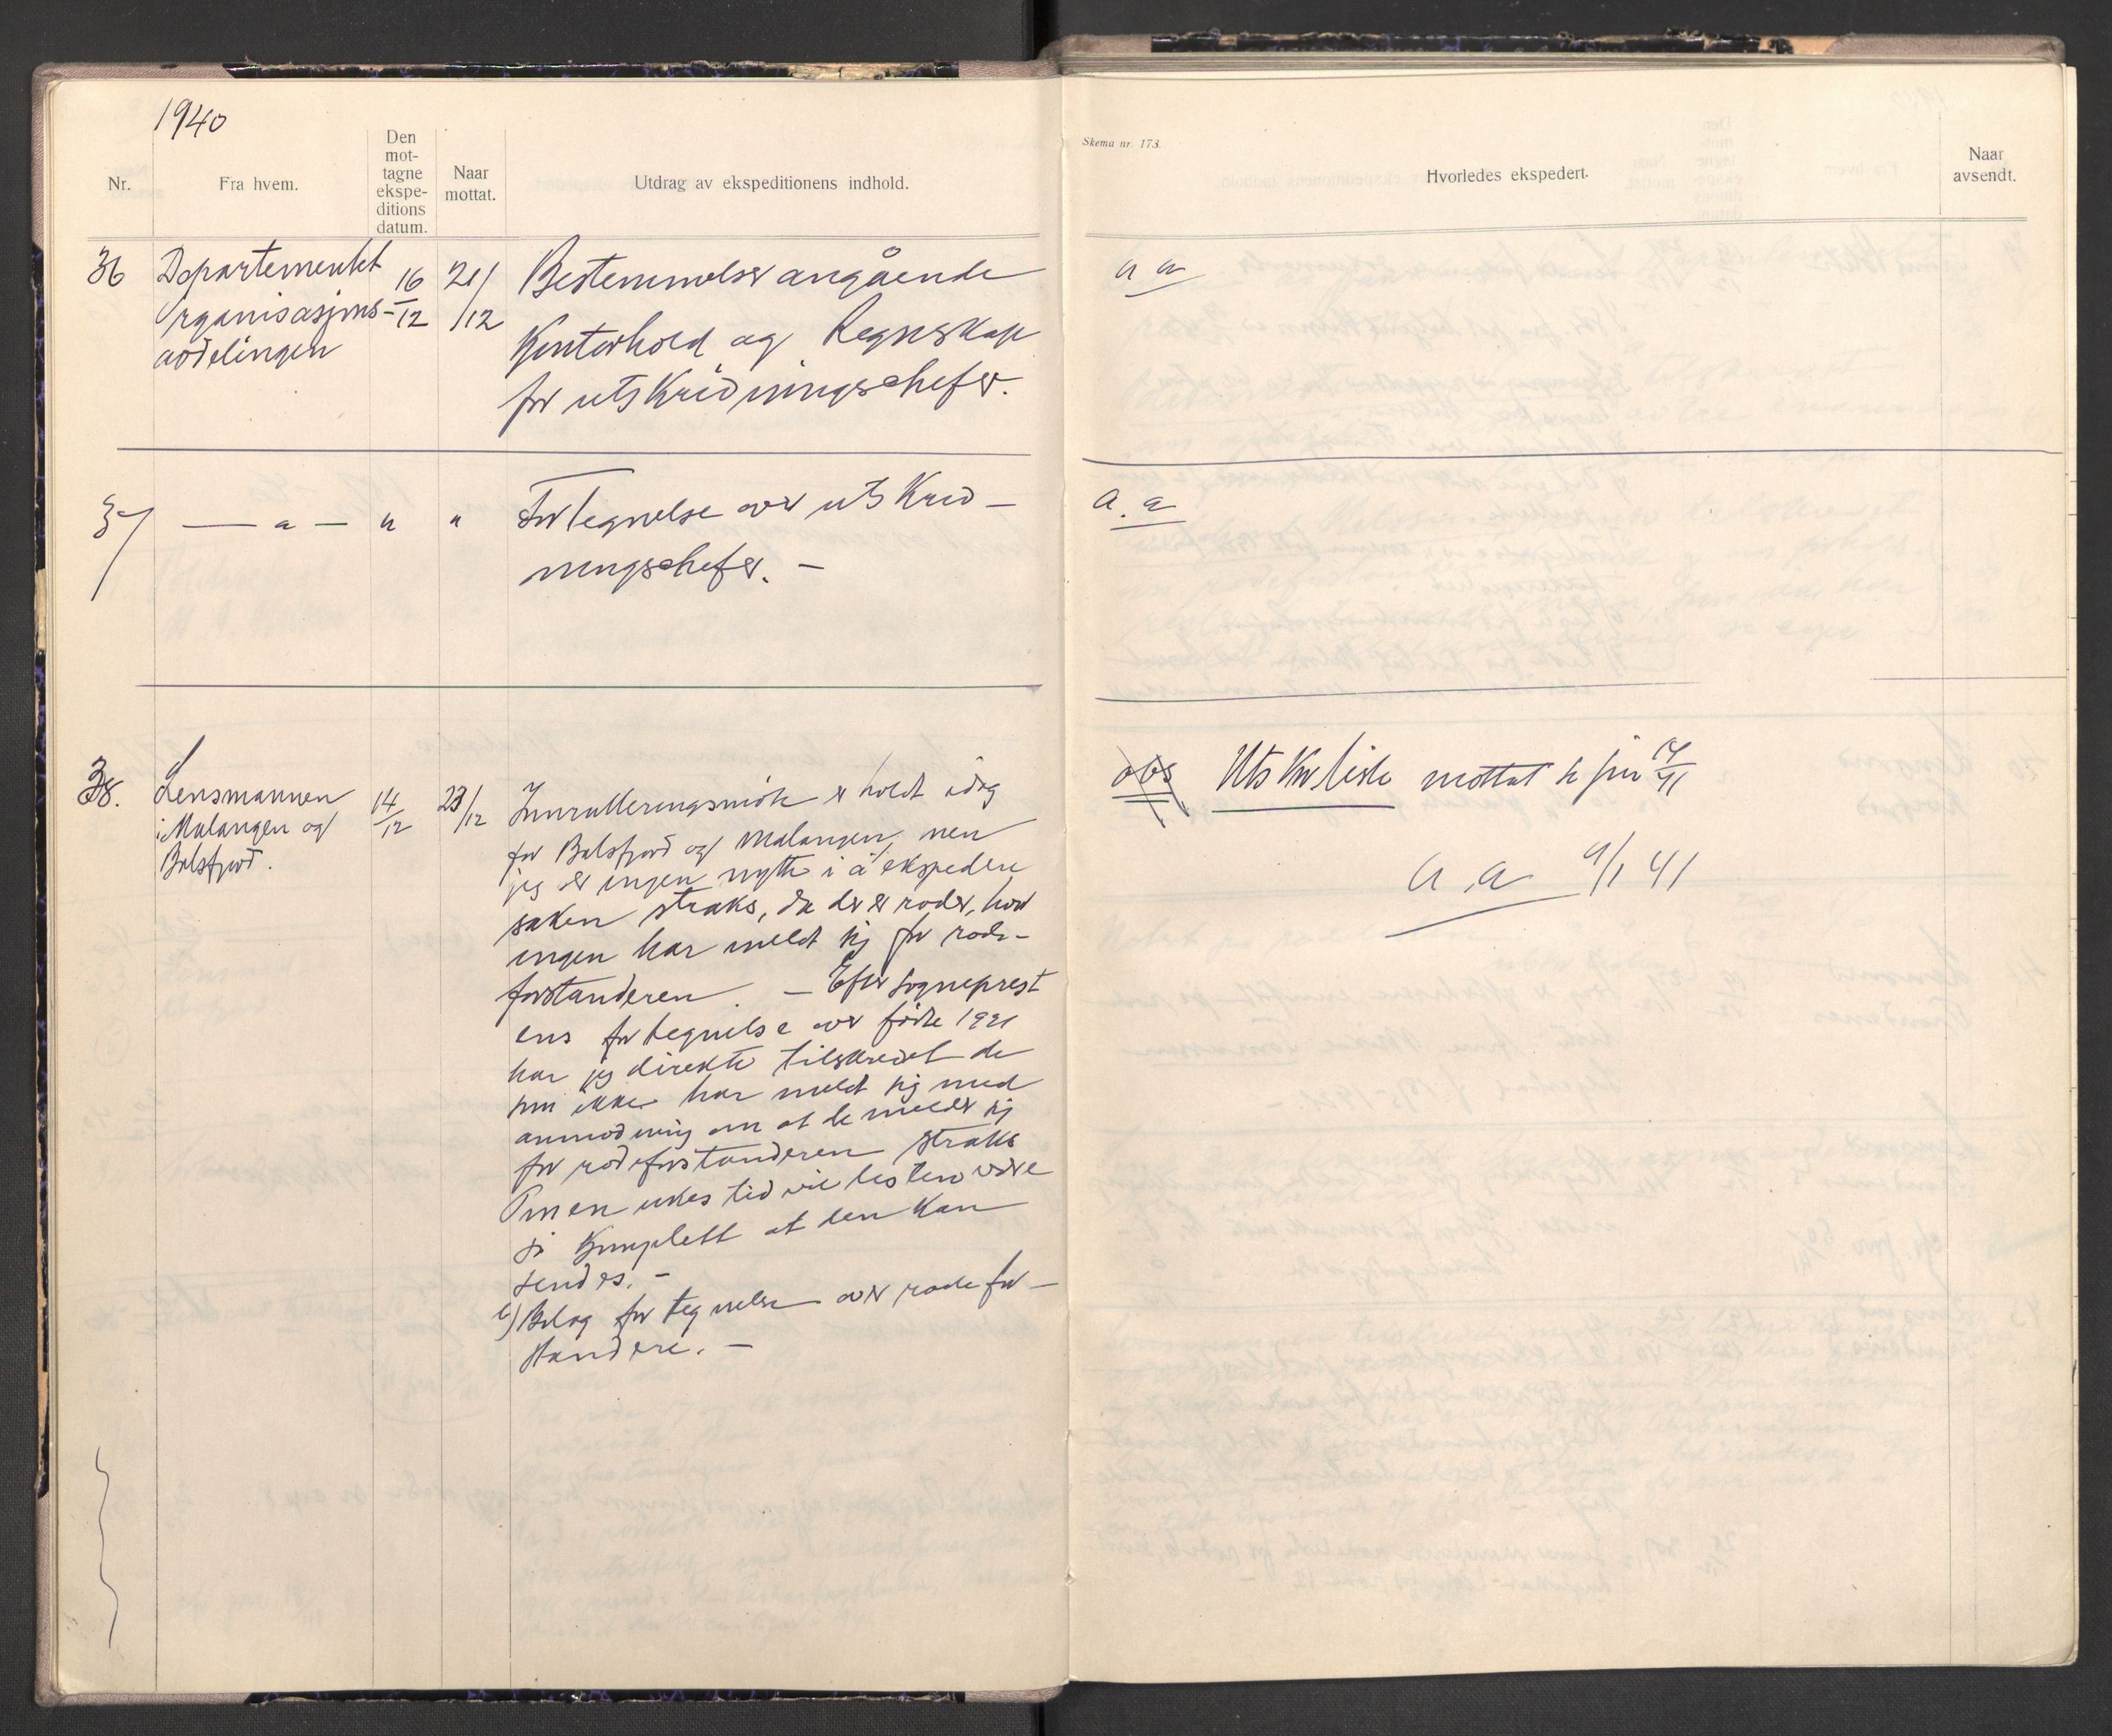 1940
Nr.
Fra hvem.
Den
mot-
tagne
ekspe-
ditions
datum.
Naar
mottat.
Utdrag av ekspeditionens indhold.
36
Departementet
Organisasjons-
avdelingen
16/12
21/12
Bestemmelser angående
Kontorhold og Regnskap
for utskrivningschefer.
37
— " —
"
"
Fortegnelse over utskriv-
ningschefer. —
38.
Lensmannen
i Malangen og
Balsfjord.
14/12
23/12
Innrulleringsmöte er holdt idag
for Balsfjord og Malangen, men
jeg ser ingen nytte i å ekspedere
saken straks, da der er roder, hvor
ingen har meldt sig for rode-
forstanderen. — Efter sogneprest
ens fortegnelse over födte 1921
har jeg direkte tilskrevet de
som ikke har meldt sig med
anmodning om at de melder sig
for rodeforstanderen straks
Om en ukes tid vil listen være
så komplett at den kan
sendes. —
Bilag fortegnelse over rodefor-
standere. —
Skema nr. 173.
Hvorledes ekspedert.
Naar
avsendt.
a a
a. a
obs
Utskr liste mottat
a. a 9/1 41